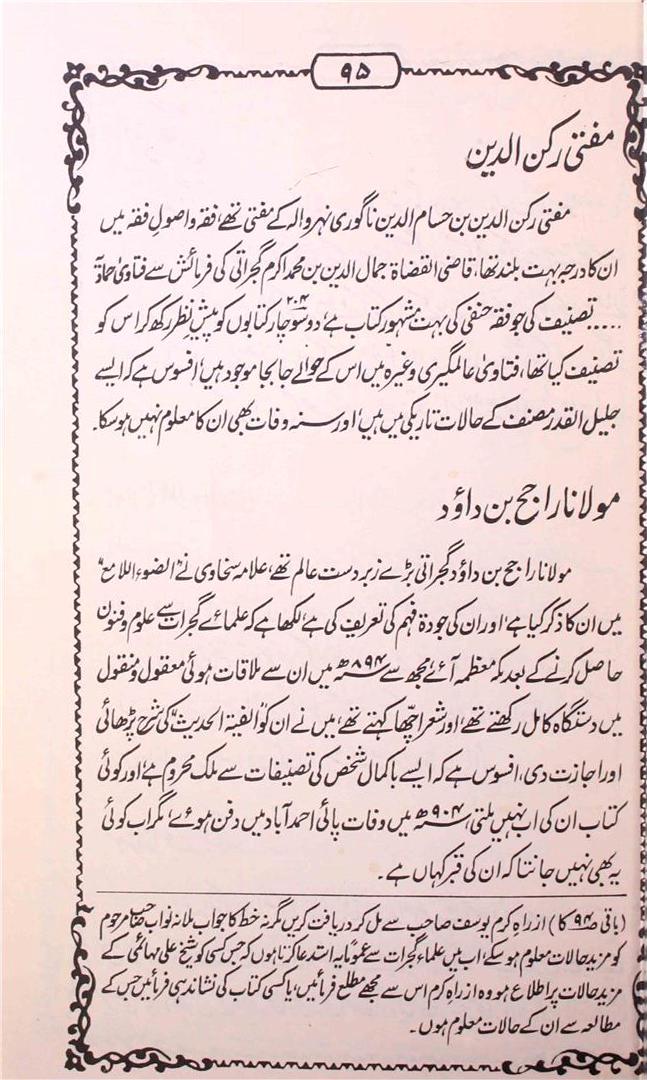 ۹۵
مفتی رکن الدین
مفتی رکن الدین بن حسام الدین ناگوری نہروالہ کے مفتی تھے، فقہ و اصولِ فقہ میں
ان کا درجہ بہت بلند تھا، قاضی القضاۃ جمال الدین بن محمد اکرم گجراتی کی فرمائش سے فتاویٰ حمادیہ
..... تصنیف کی جو فقہ حنفی کی بہت مشہور کتاب ہے، دو سو چار ۲۰۴ کتابوں کو پیشِ نظر رکھ کر اس کو
تصنیف کیا تھا، فتاویٰ عالمگیری وغیرہ میں اس کے حوالے جا بجا موجود ہیں، افسوس ہے کہ ایسے
جلیل القدر مصنف کے حالات تاریکی میں ہیں، اور سنہ وفات بھی ان کا معلوم نہیں ہو سکا۔
مولانا راجح بن داؤد
مولانا راجح بن داؤد گجراتی بڑے زبردست عالم تھے، علامہ سخاوی نے "الضوء اللامع"
میں ان کا ذکر کیا ہے، اور ان کی جودۃ فہم کی تعریف کی ہے، لکھا ہے کہ علمائے گجرات سے علوم و فنون
حاصل کرنے کے بعد مکہ معظمہ آئے، مجھ سے ۸۹۴ھ میں ان سے ملاقات ہوئی معقول و منقول
میں دستگاہ کامل رکھتے تھے، اور شعر اچھا کہتے تھے، میں نے ان کو "الفیۃ الحدیث" کی شرح پڑھائی
اور اجازت دی، افسوس ہے کہ ایسے باکمال شخص کی تصنیفات سے ملک محروم ہے، اور کوئی
کتاب ان کی اب نہیں ملتی، ۹۰۴ھ میں وفات پائی احمدآباد میں دفن ہوئے، مگر اب کوئی
یہ بھی نہیں جانتا کہ ان کی قبر کہاں ہے۔
(باقی ص۹۴ کا) از راہِ کرم یوسف صاحب سے مل کر دریافت کریں مگر نہ خط کا جواب ملا نہ نواب صاحب مرحوم
کو مزید حالات معلوم ہو سکے، اب میں علماء گجرات سے عموماً یہ استدعا کرتا ہوں کہ جس کسی کو شیخ علی مہائمی کے
مزید حالات پر اطلاع ہو وہ از راہ کرم اس سے مجھے مطلع فرمائیں، یا کسی کتاب کی نشاندہی فرمائیں جس کے
مطالعہ سے ان کے حالات معلوم ہوں۔